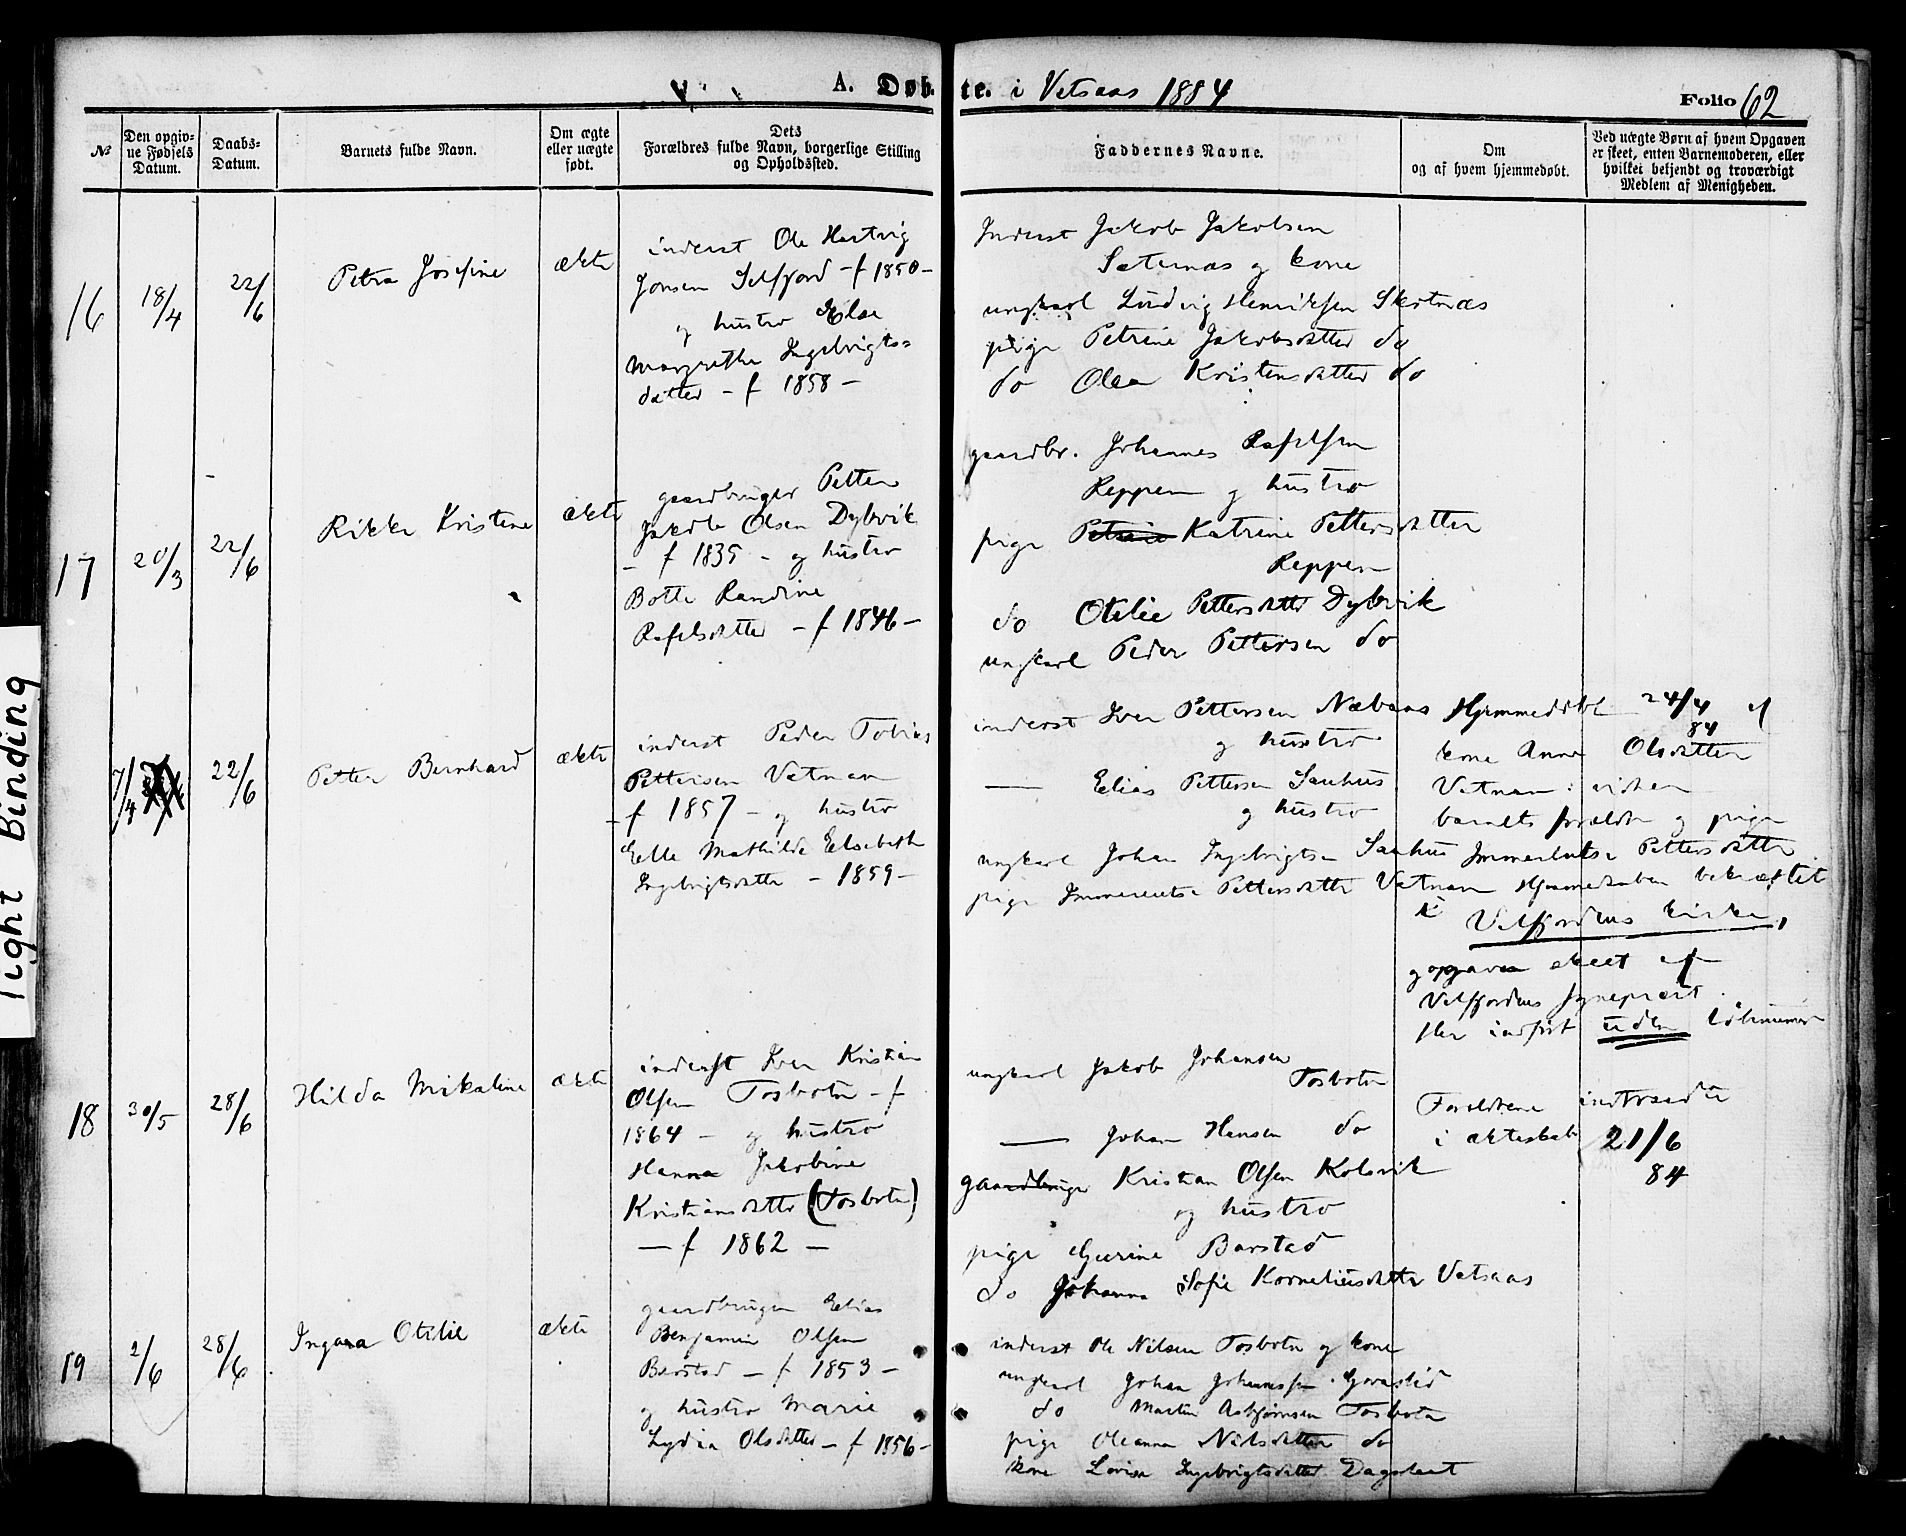 A. Døbte. i Vetsaas 1884
Folio 62
№
Den opgivne Fødsels Datum.
Daabs-Datum.
Barnets fulde Navn.
Om ægte eller uægte født.
Dets Forældres fulde Navn, borgerlige Stilling og Opholdssted.
Faddernes Navne.
Om og af hvem hjemmedøbt.
Ved uægte Børn af hvem Opgaven er skeet, enten Barnemoderen, eller hvilket bekjendt og troværdigt Medlem af Menigheden.
16
18/4
22/6
Petra Josefine
ækte
inderst Ole Hartvig
Jonsen Selfjord - f 1850 -
og hustro Else
Margrethe Ingebrigts=
datter - f 1858 -
Inderst Jakob Jakobsen
Sæternæs og kone
ungkarl Ludvig Henriksen Skotnæs
pige Petrine Jakobsdatter do
do Olea Kristensdatter do
17
20/3
22/6
Rikka Kristine
ækte
gaardbruger Petter
Jakob Olsen Dybvik
- f 1839 - og hustro
Botle Randine
Rafelsdatter - f 1846 -
gaardbr. Johannes Rafelsen
Reppen og hustro
pige Petrine Katrine Pettersdatter
Reppen
do Otelie Pettersdatter Dybvik
ungkarl Peder Pettersen do
7/4
22/6
Petter Bernhard
ækte
inderst Peder Tobias
Pettersen Vetman
- f 1857 - og hustro
Elle Mathilde Elsebeth
Ingebrigtsdatter - 1859 -
inderst Iver Pettersen
og hustro
— Elias Pettersen Sauhus
og hustro
ungkarl Johan Ingebrigtsen Sauhus
pige Pettersdatter Vetman
Hjemmedøbt 24/4 84 af
kone Anne Olsdatter
barnets forældre og pige
Pettersdatter
Hjemmedaaben bekræftet
i Velfjordens kirke,
og opgaven skeet af
Velfjordens sogneprest.
Her indført uden løbenummer
18
30/5
28/6
Hilda Mikaline
ækte
inderst Iver Kristian
Olsen Tosbotn - f
1864 - og hustro
Hanna Jakobine
Kristiansdatter (Tosbotn)
- f 1862 -
ungkarl Jakob Johansen
Tosbotn
— Johan Hansen do
gaardbruger Kristian Olsen Kolsvik
og hustro
pige Gjerine Barstad
do Johanna Sofie Korneliusdatter Vetsaas
Forældrene indtraadte
i ækteskab 21/6
84
19
2/6
28/6
Ingara Otelie
ækte
gaardbruger Elias
Benjamin Olsen
Barstad - f 1853 -
og hustro Marie
Lydia Olsdatter - f 1856 -
inderst Ole Nilsen Tosbotn og kone
ungkarl Johan Johannessen
do Martin Asbjørnsen Tosbotn
pige Oleanna Nilsdatter do
kone Lovisa Ingebrigtsdatter Dagslaat
Tight Binding